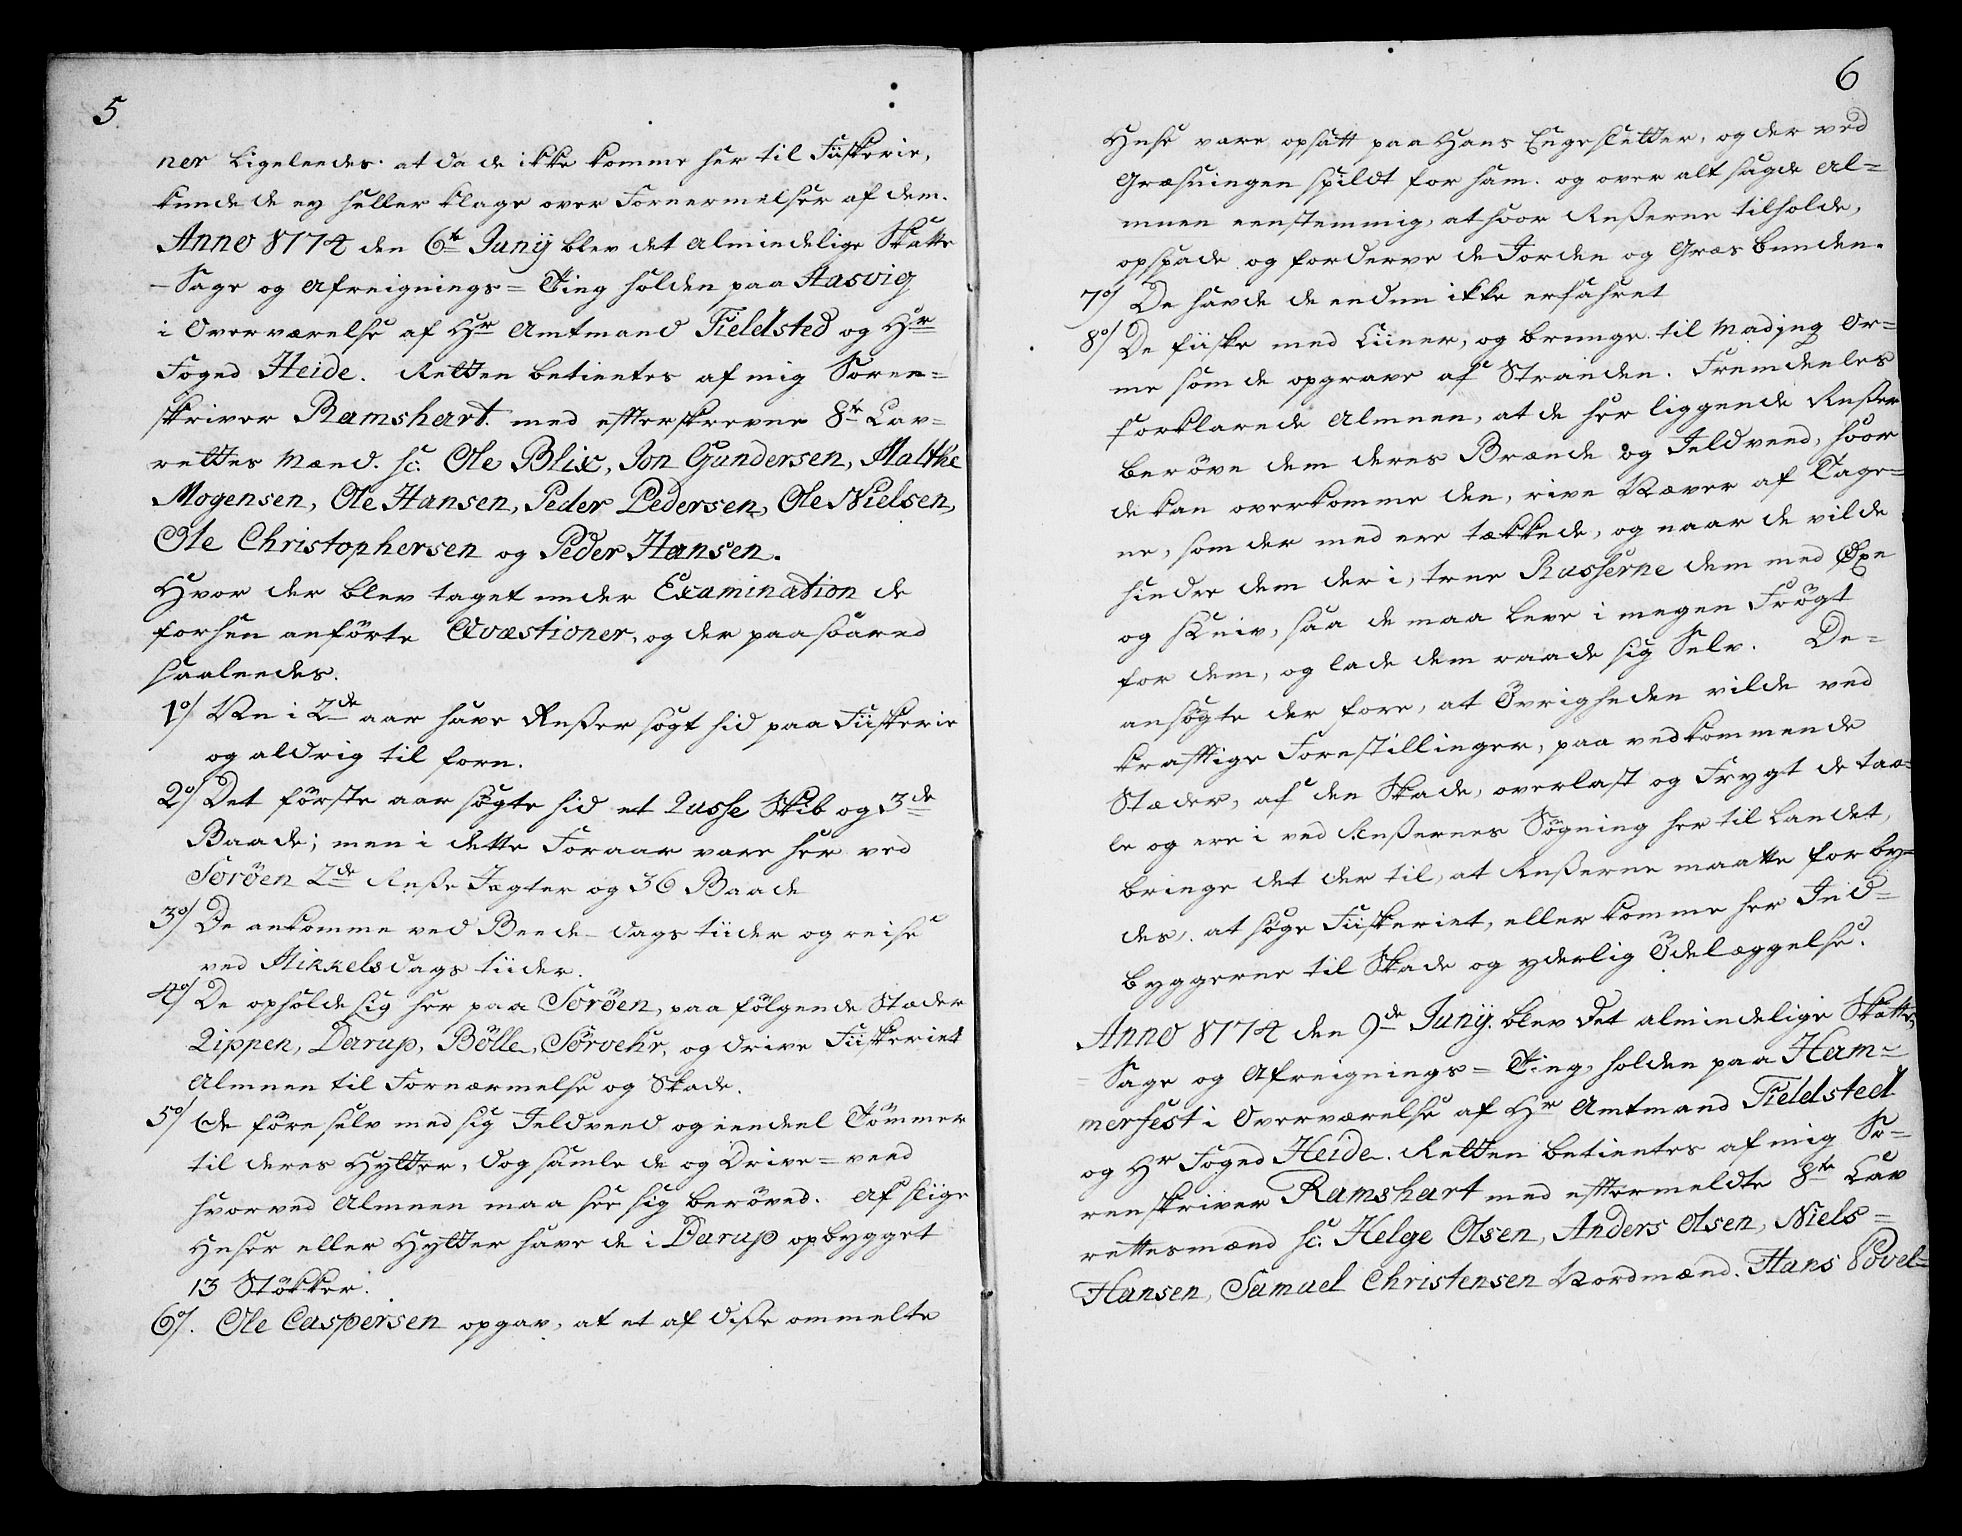 5.
ner ligeleedes. at da de ikke komme her til Fiskerie,
kunde de ey heller klage over Fornermelser af dem.
Anno 1774 den 6te Junij blev det almindelige Skatte
-Sage og Afreignings= Ting holden paa Hasvig
i Overværelse af Hr Amtmand Fieldsted og Hr
Foged Heide. Retten betientes af mig Soren=
skriver Ramshart. med efterskrevne 8te Lav=
rettes Mænd. sc: Ole Blix, Jon Gundersen, Malthe
Mogensen, Ole Hansen, Peder Pedersen, Ole Nielsen,
Ole Christophersen og Peder Hansen.
Hvor der blev taget under Examination de
forhen anförte Qvæstioner, og der paa svared
saaleedes.
1o/ Nu i 2de aar have Russer sögt hid paa Fiskerie
og aldrig til forn.
2o/ Det förste aar sögte hid et Russe Skib og 3de
Baade; men i dette Foraar vare her ved
Soröen 2de Russe Jægter og 36 Baade
3o/ De ankomme ved Beede-dags tiider og reise
ved Mikkelsdags tiider.
4o/ De opholde sig her paa Soröen, paa fölgende Stæder
Lippen, Darup, Bölle, Sörvehr, og drive Fiskeriet
Almuen til Fornærmelse og Skade.
5o/ De före selv med sig Ildveed og eendeel Tömmer
til deres Hytter, dog samle de og Drive=veed
hvorved Almuen maa see sig beröved. Af slige
Huser eller Hytter have de i Darup opbygget
13 Stökker.
6o/. Ole Caspersen opgav, at et af disse ommelte
6
Huse vare opsatt paa Hans Engesletter, og der ved
Græsningen spildt for ham. og over alt sagde Al=
muen eenstemmig, at hvor Russerne tilholde,
opspade og forderve de Jorden og Græs bunden.
7o/ De havde de endnu ikke erfahret
8o/ De fiske med Liiner, og bruuge til Mading Or=
me som de opgrave af Stranden. Fremdeeles
forklarede Almuen, at de her liggende Russer
beröve dem deres Brænde og Ildveed, hvor
de kan overkomme den, rive Næver af Tage=
ne, som der med ere tækkede, og naar de vilde
hindre dem der i, true Russerne dem med Øxe
og Kniv, saa de maa leve i megen Frögt
for dem, og lade dem raade sig Selv. De=
ansögte der fore, at Övrigheden vilde ved
kraftige Forestillinger, paa vedkommende
Stæder, af den Skade, overlast og Frygt de taa=
le og ere i ved Russernes Sögning her til Landet,
bringe det der til, at Russerne maatte forby=
des, at söge Fiskeriet, eller komme her Ind=
byggerne til Skade og yderlig Ödelæggelse.
Anno 1774 den 9de Junij. blev det almindelige Skatte,
=Sage og Afreignings= Ting, holden paa Ham=
merfest i Overværelse af Hr Amtmand Fieldsted
og Hr Foged Heide. Retten betientes af mig So=
renskriver Ramshart med eftermeldte 8te Lav
rettesmænd sc: Helge Olsen, Anders Olsen, Niels=
Hansen, Samuel Christensen Nordmænd. Hans Povel=